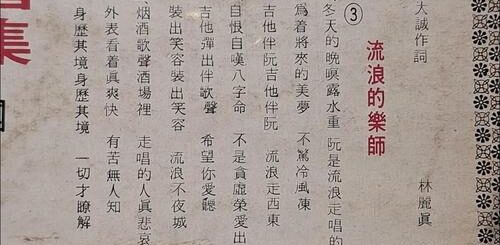 大誠作詞 林麗眞
③ 流浪的樂師
冬天的晚暝露水重 阮是流浪走唱的
爲着將來的美夢 不驚冷風凍
吉他伴阮吉他伴阮 流浪走西東
自恨自嘆八字命 不是貪虛榮愛出
吉他彈出伴歌聲 希望你愛聽
裝出笑容裝出笑容 流浪不夜城
烟酒歌聲酒場裡 走唱的人眞悲哀
外表看着眞爽快 有苦無人知
身歷其境身歷其境 一切才瞭解
集